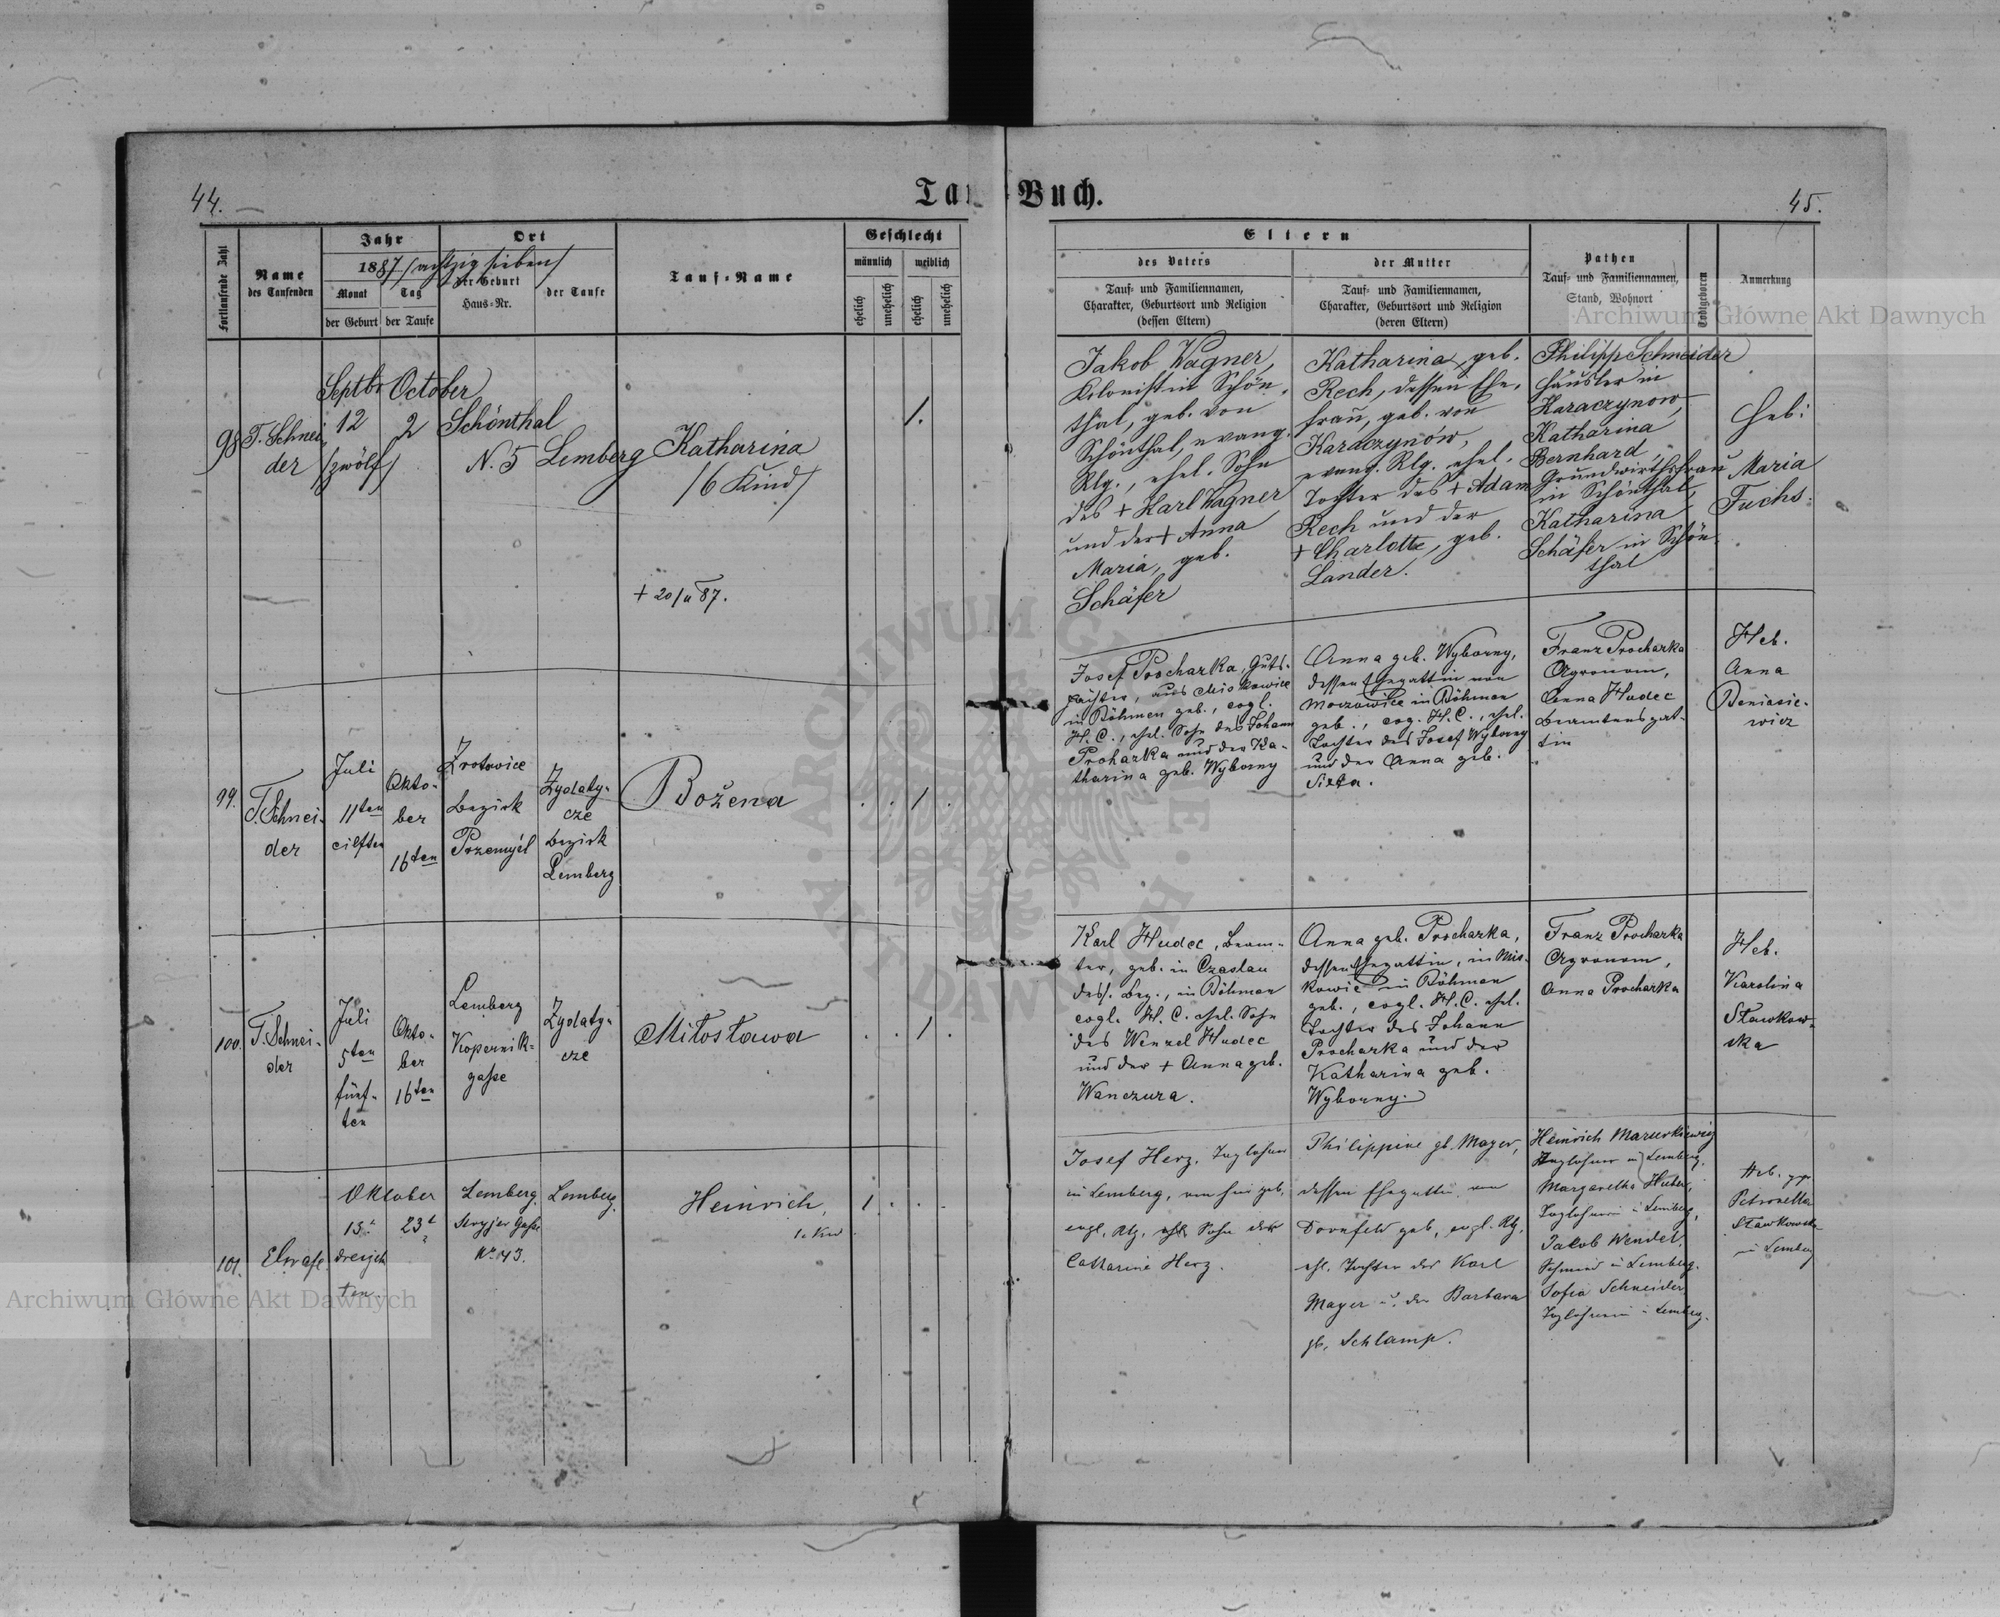 44.
Tauf-Buch.
45.
Fortlaufende Zahl
Name
des Taufenden
Jahr
1887 /achtzig sieben/
Monat
Tag
der Geburt
der Taufe
Ort
der Geburt
Haus-Nr.
der Taufe
Tauf-Name
Geschlecht
männlich
weiblich
ehelich
unehelich
ehelich
unehelich
Eltern
des Vaters
Tauf- und Familiennamen,
Charakter, Geburtsort und Religion
(dessen Eltern)
der Mutter
Tauf- und Familiennamen,
Charakter, Geburtsort und Religion
(deren Eltern)
Pathen
Tauf- und Familiennamen,
Stand, Wohnort
Todtgeboren
Anmerkung
98
T. Schnei
der
Septbr
12
/zwölf/
October
2
Schönthal
N. 5
Lemberg
Katharina
/6 Kind/
+ 20/11 87.
1.
Jakob Wagner,
Kolonist in Schön-
thal, geb. von
Schönthal, evang.
Rlg., ehel. Sohn
des + Karl Wagner
und der + Anna
Maria, geb.
Schäfer
Katharina, geb.
Rech, dessen Ehe-
frau, geb. von
Karaczynów,
evang. Rlg. ehel.
Tochter des + Adam
Rech und der
+ Charlotte, geb.
Lander.
Philipp Schneider
Häusler in
Karaczynow,
Katharina
Bernhard,
Grundwirthsfrau
in Schönthal,
Katharina
Schäfer in Schön-
thal
Heb:
Maria
Fuchs.
99.
T. Schnei-
der
Juli
11ten
eilften
Okto-
ber
16ten
Zrotowice
Bezirk
Przemyśl
Zydaty-
cze
Bezirk
Lemberg
Božena
. . 1 .
Josef Procharka, Guts-
pächter, aus Miskowice
in Böhmen geb., evgl.
H. C., ehel. Sohn des Johann
Proharka und der Ka-
tharina geb. Wyborny
Anna geb. Wyborny,
dessen Ehegattin von
Moczowice in Böhmen
geb., evg. H. C., ehel.
Tochter des Josef Wyborny
und der Anna geb.
Franz Procharka
Agronom,
Anna Hudec
Beamtensgat-
tin
Heb.
Anna
Beniasie-
wicz
100.
T. Schnei-
der
Juli
5ten
fünf-
ten
Okto-
ber
16ten
Lemberg
Kopernik-
gasse
Zydaty-
cze
Miłosława
. . 1 .
Karl Hudec, Beam-
ter, geb. in Czaslau
dess. Bez., in Böhmen
evgl. H. C. ehel. Sohn
des Wenzel Hudec
und der + Anna geb.
Wanczura.
Anna geb. Procharka,
dessen Ehegattin, in Mis-
kowic in Böhmen
geb., evgl. H. C. ehel.
Tochter des Johann
Procharka und der
Katharina geb.
Wyborny.
Franz Procharka
Agronom,
Anna Procharka
Heb.
Karolina
Sławkow-
ska
101.
Oktober
13t
dreizehn
ten
23t
Lemberg.
Stryjer Gasse
No 43.
Lemberg.
Heinrich,
1. Kind
1 . . .
Josef Herz, Taglöhner
in Lemberg, von hier geb,
evgl. Rlg. ehl. Sohn der
Catharine Herz.
Philippine gb. Mayer,
dessen Ehegattin, von
Dornfeld geb, evgl. Rlg,
ehl. Tochter des Karl
Mayer u. der Barbara
gb. Schlamp.
Heinrich Mazurkiewicz
Taglöhner in Lemberg.
Margaretha Huber,
Taglöhnerin in Lemberg,
Jakob Wendel,
Schmied in Lemberg.
Sofia Schneider,
Taglöhnerin in Lemberg.
Heb.
Petronella
Sławkowska
in Lemberg
Archiwum Główne Akt Dawnych
Archiwum Główne Akt Dawnych
ARCHIWUM GŁÓWNE AKT DAWNYCH